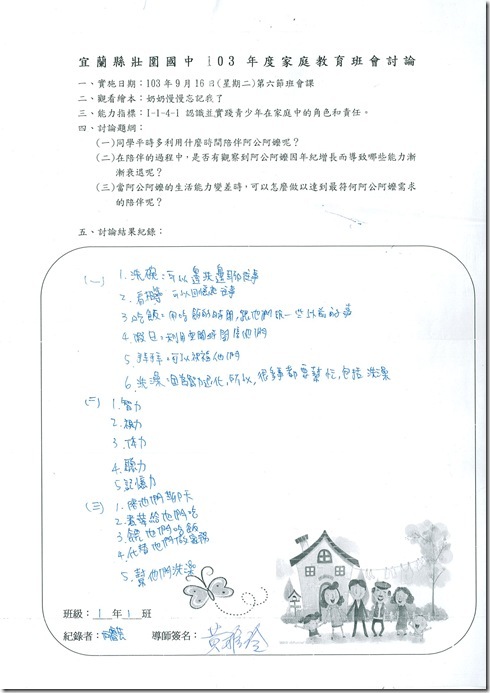 宜蘭縣壯圍國中 103 年度家庭教育班會討論
一、實施日期：103年9月16日(星期二)第六節班會課
二、觀看繪本：奶奶慢慢忘記我了
三、能力指標：1-1-4-1 認識並實踐青少年在家庭中的角色和責任。
四、討論題綱：
(一)同學平時多利用什麼時間陪伴阿公阿嬤呢？
(二)在陪伴的過程中，是否有觀察到阿公阿嬤因年紀增長而導致哪些能力漸
漸衰退呢？
(三)當阿公阿嬤的生活能力變差時，可以怎麼做以達到最符何阿公阿嬤需求
的陪伴呢？
五、討論結果紀錄：
(一) 1. 洗碗：可以邊洗邊聊故事
2. 看 可以回憶 故事
3. 吃飯：用吃飯的時間,跟他們 一些以前的事
4. 假日：利用空閒時間陪他們
5. 可以 他們
6. 洗澡：因為 退化,所以,很多事都要幫忙,包括洗澡
(二) 1. 智力
2. 視力
3. 體力
4. 聽力
5. 記憶力
(三) 1. 陪他們聊天
2. 煮菜給他們吃
3. 餵他們吃飯
4. 代替他們做家務
5. 幫他們洗澡
班級：1 年 1 班
紀錄者： 導師簽名：黃雅玲